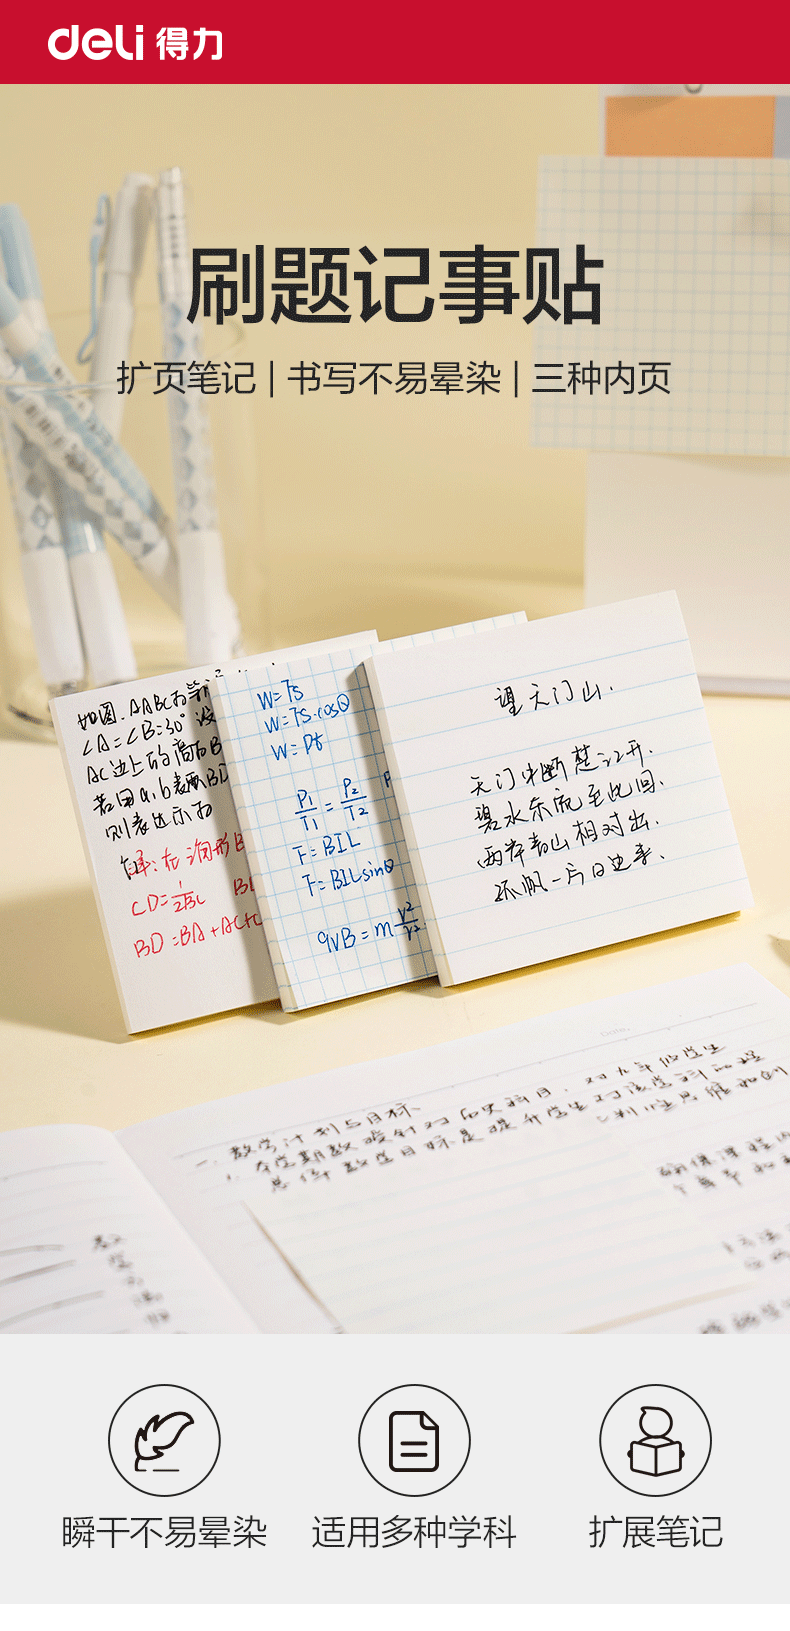 deli 得力
刷题记事贴
扩页笔记 | 书写不易晕染 | 三种内页
如图,△ABC为等
∠A=∠B=30° 设
AC边上的高为B
若用a,b表示BD
则表达示为
解:在
CD=1/2BC
BD=BA+AC+C
W=Fs
W=Fs·cosθ
W=Pt
P1/T1=P2/T2
F=BIL
F=BILsinθ
qvB=m v²/r
望天门山.
天门中断楚江开.
碧水东流至此回、
两岸青山相对出.
孤帆一片日边来、
Date.
教学计划与目标
瞬干不易晕染
适用多种学科
扩展笔记